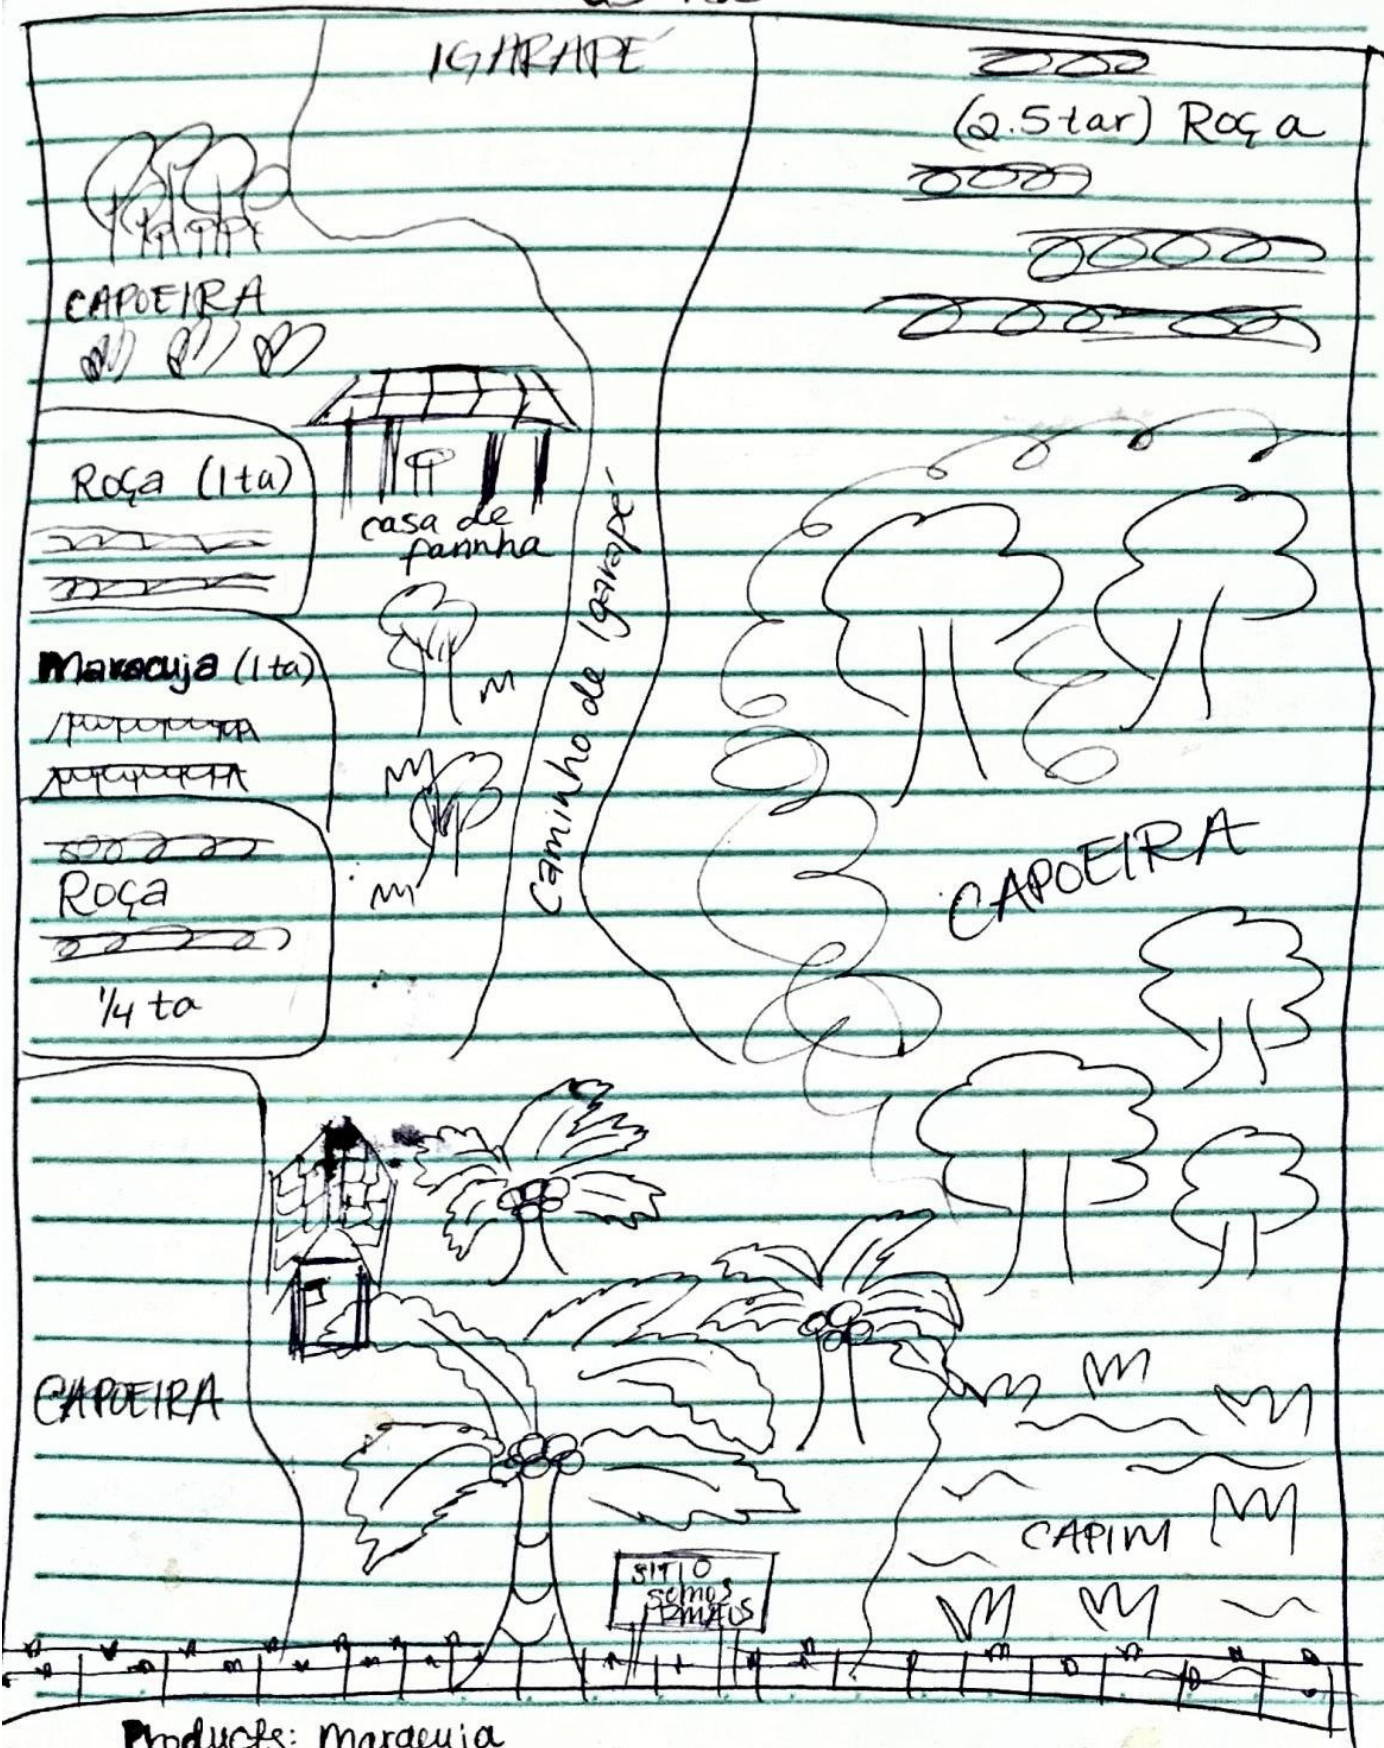 IGARAPÉ
(2.5 tar) Roça
CAPOEIRA
Roça (1ta)
casa de
farinha
Maracuja (1ta)
Caminho de Igarapé
Roça
1/4 ta
CAPOEIRA
CAPOEIRA
CAPIM
SITIO
semos
Products: maracuja